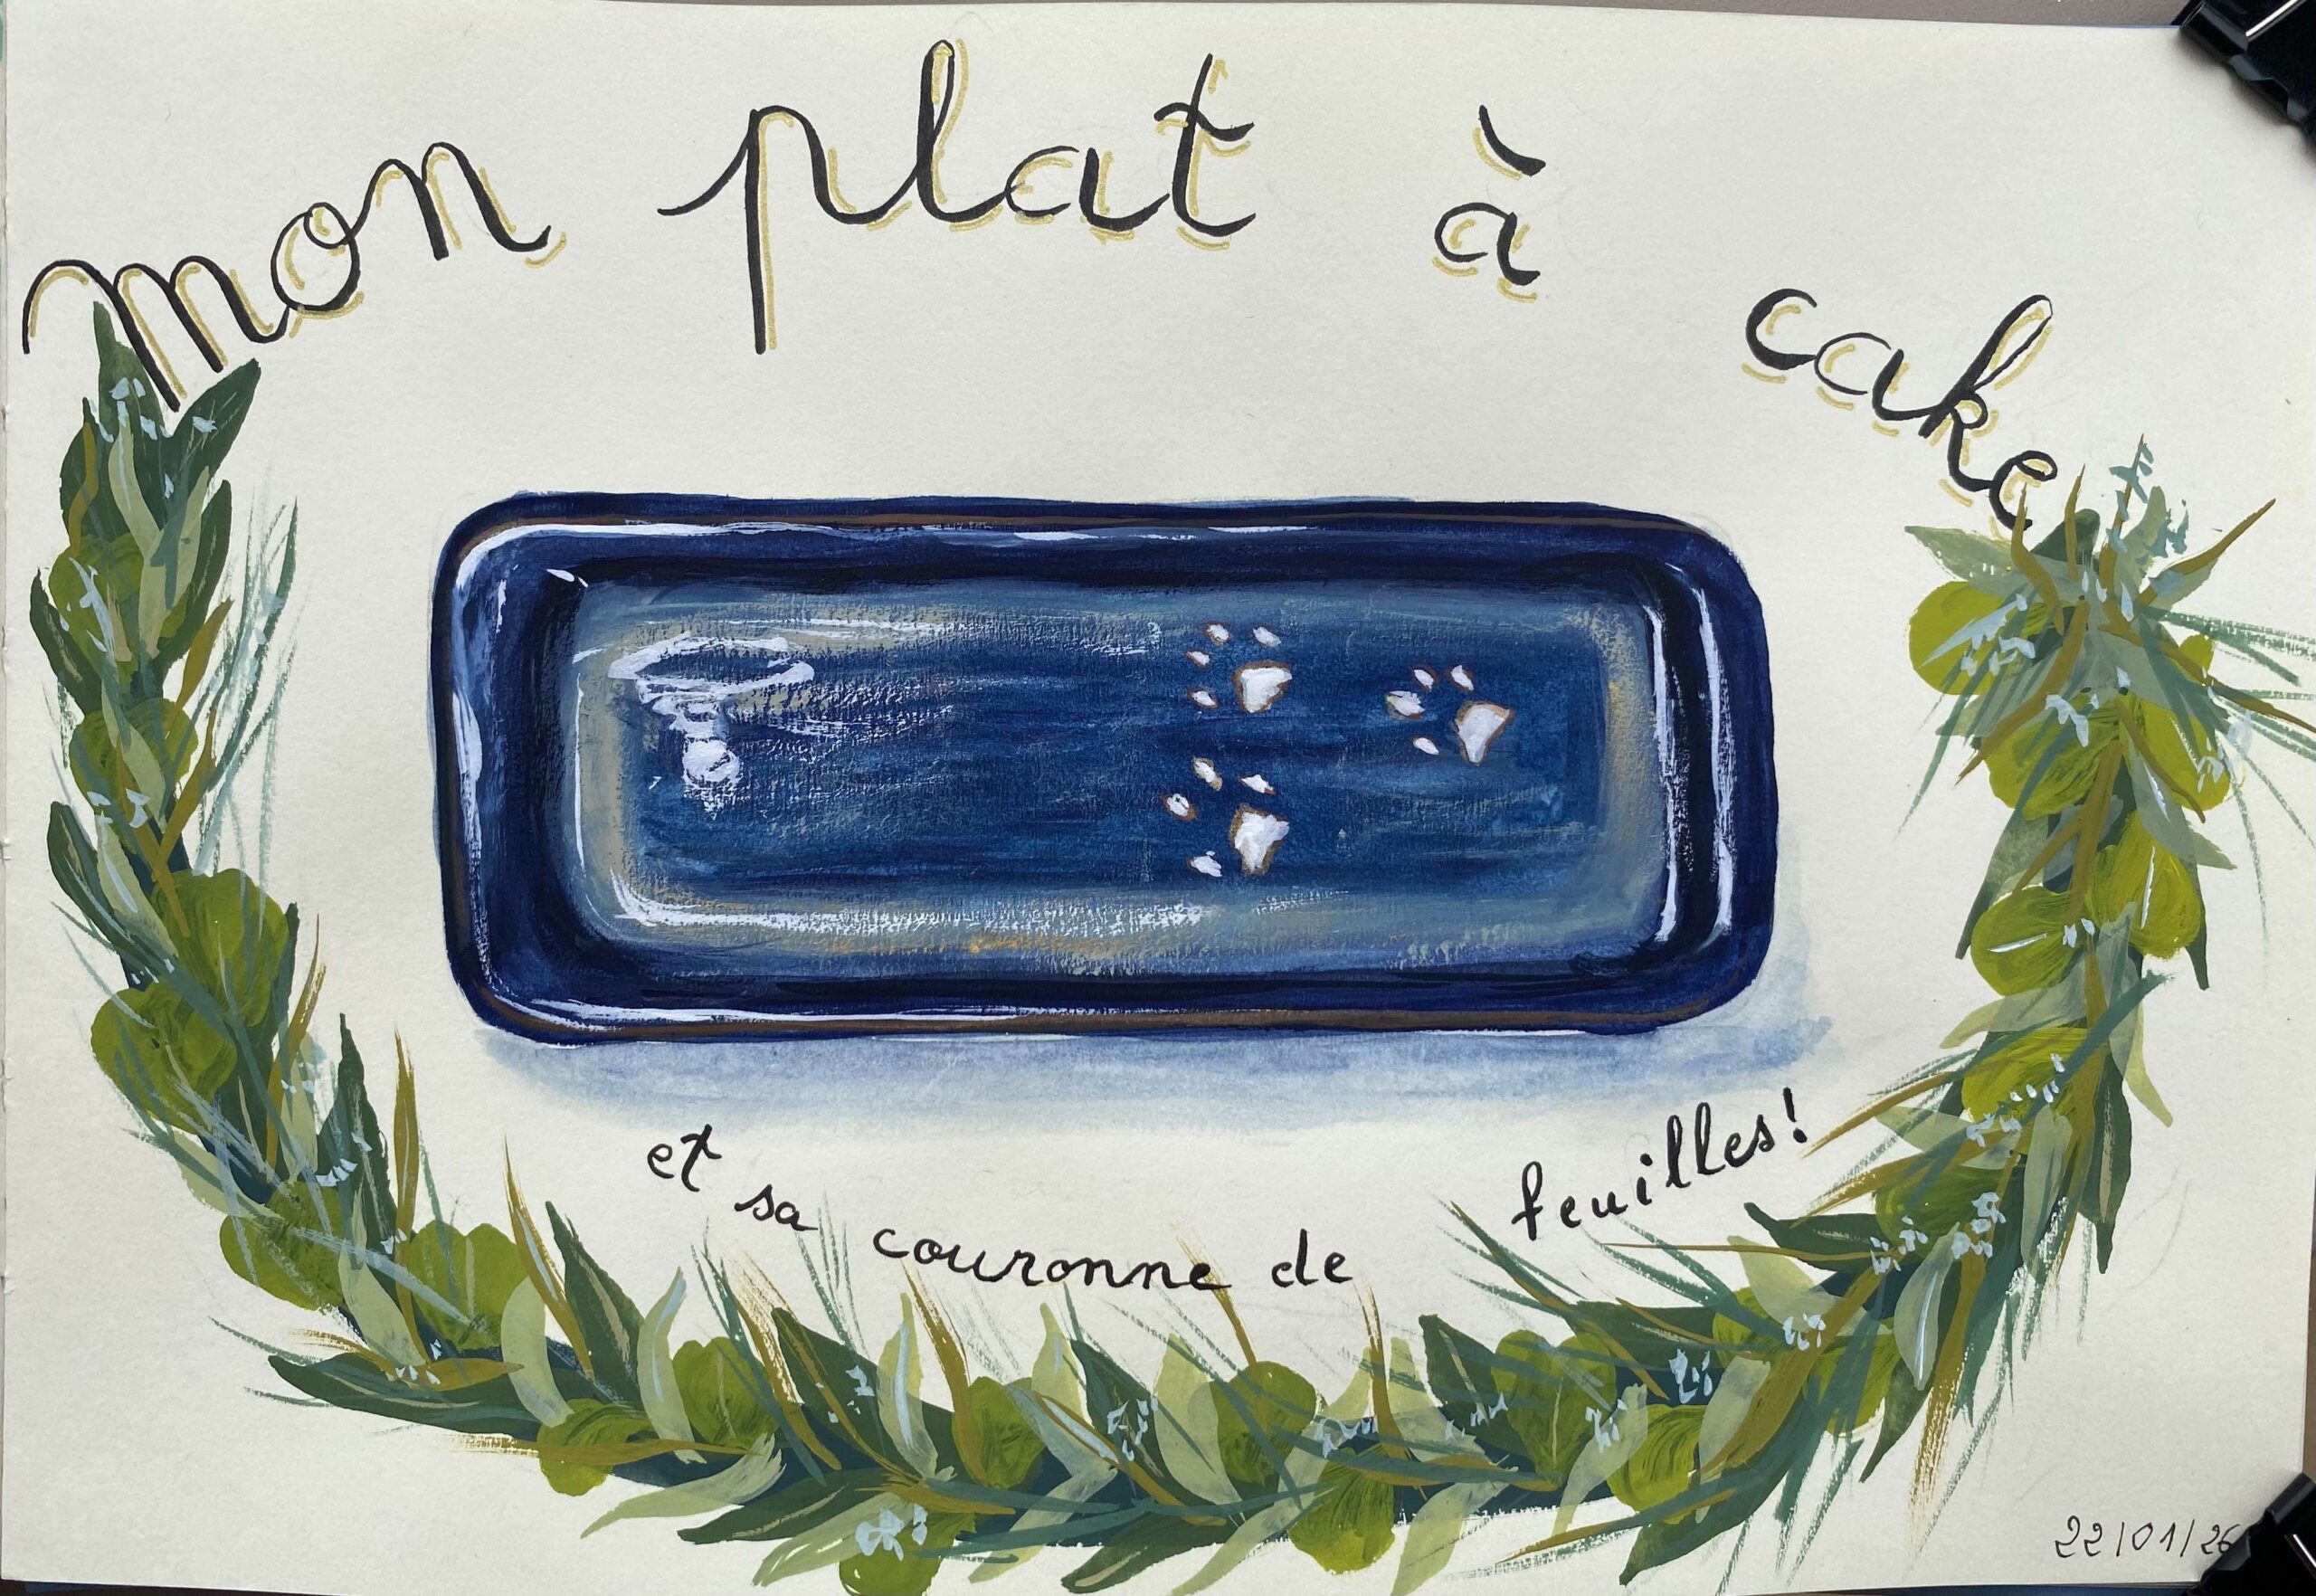 mon plat à cake
et sa couronne de feuilles!
22/01/26